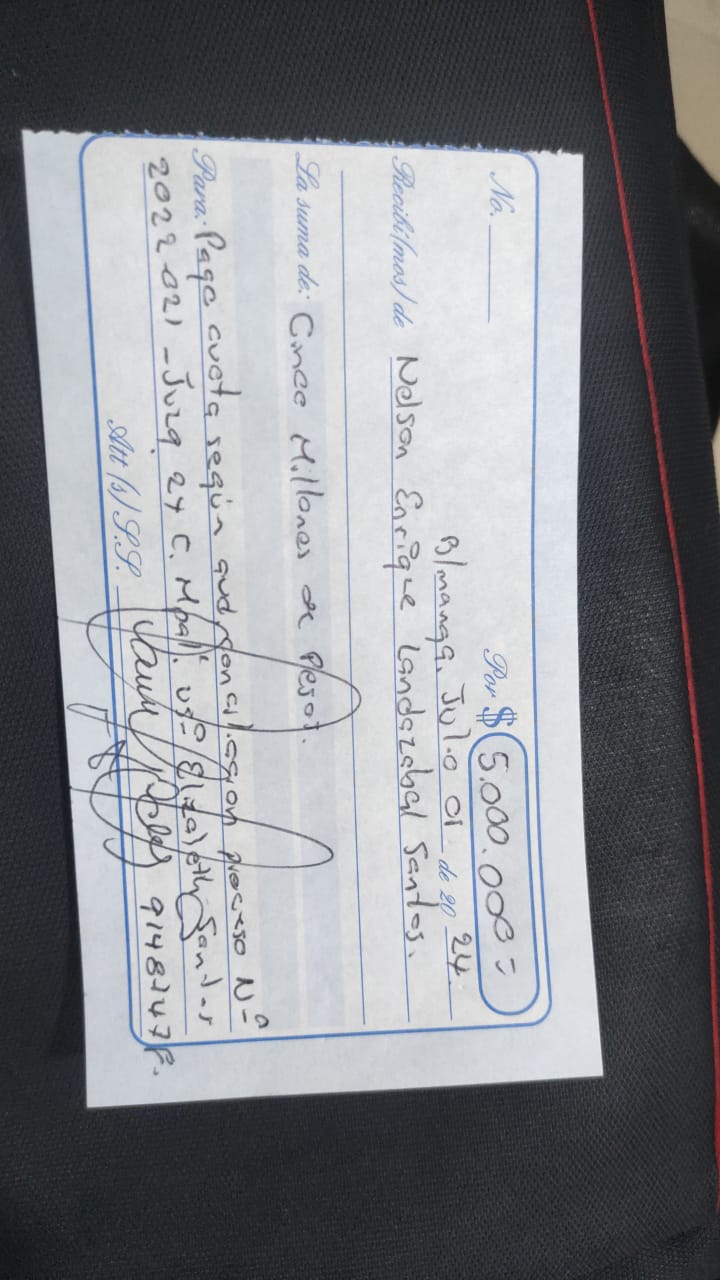 No. Por $ 5.000.000=
B/manga, Julio 01 de 20 24.
Recibí(mos) de Nelson Enrique Landazabal Santos.
La suma de: Cinco Millones de Pesos.
Para: Pago cuota según aud. conciliación proceso Nº
2022 021 - Juzg. 24 C. Mpal. vs Elizabeth Santos
Att (s) S.S.